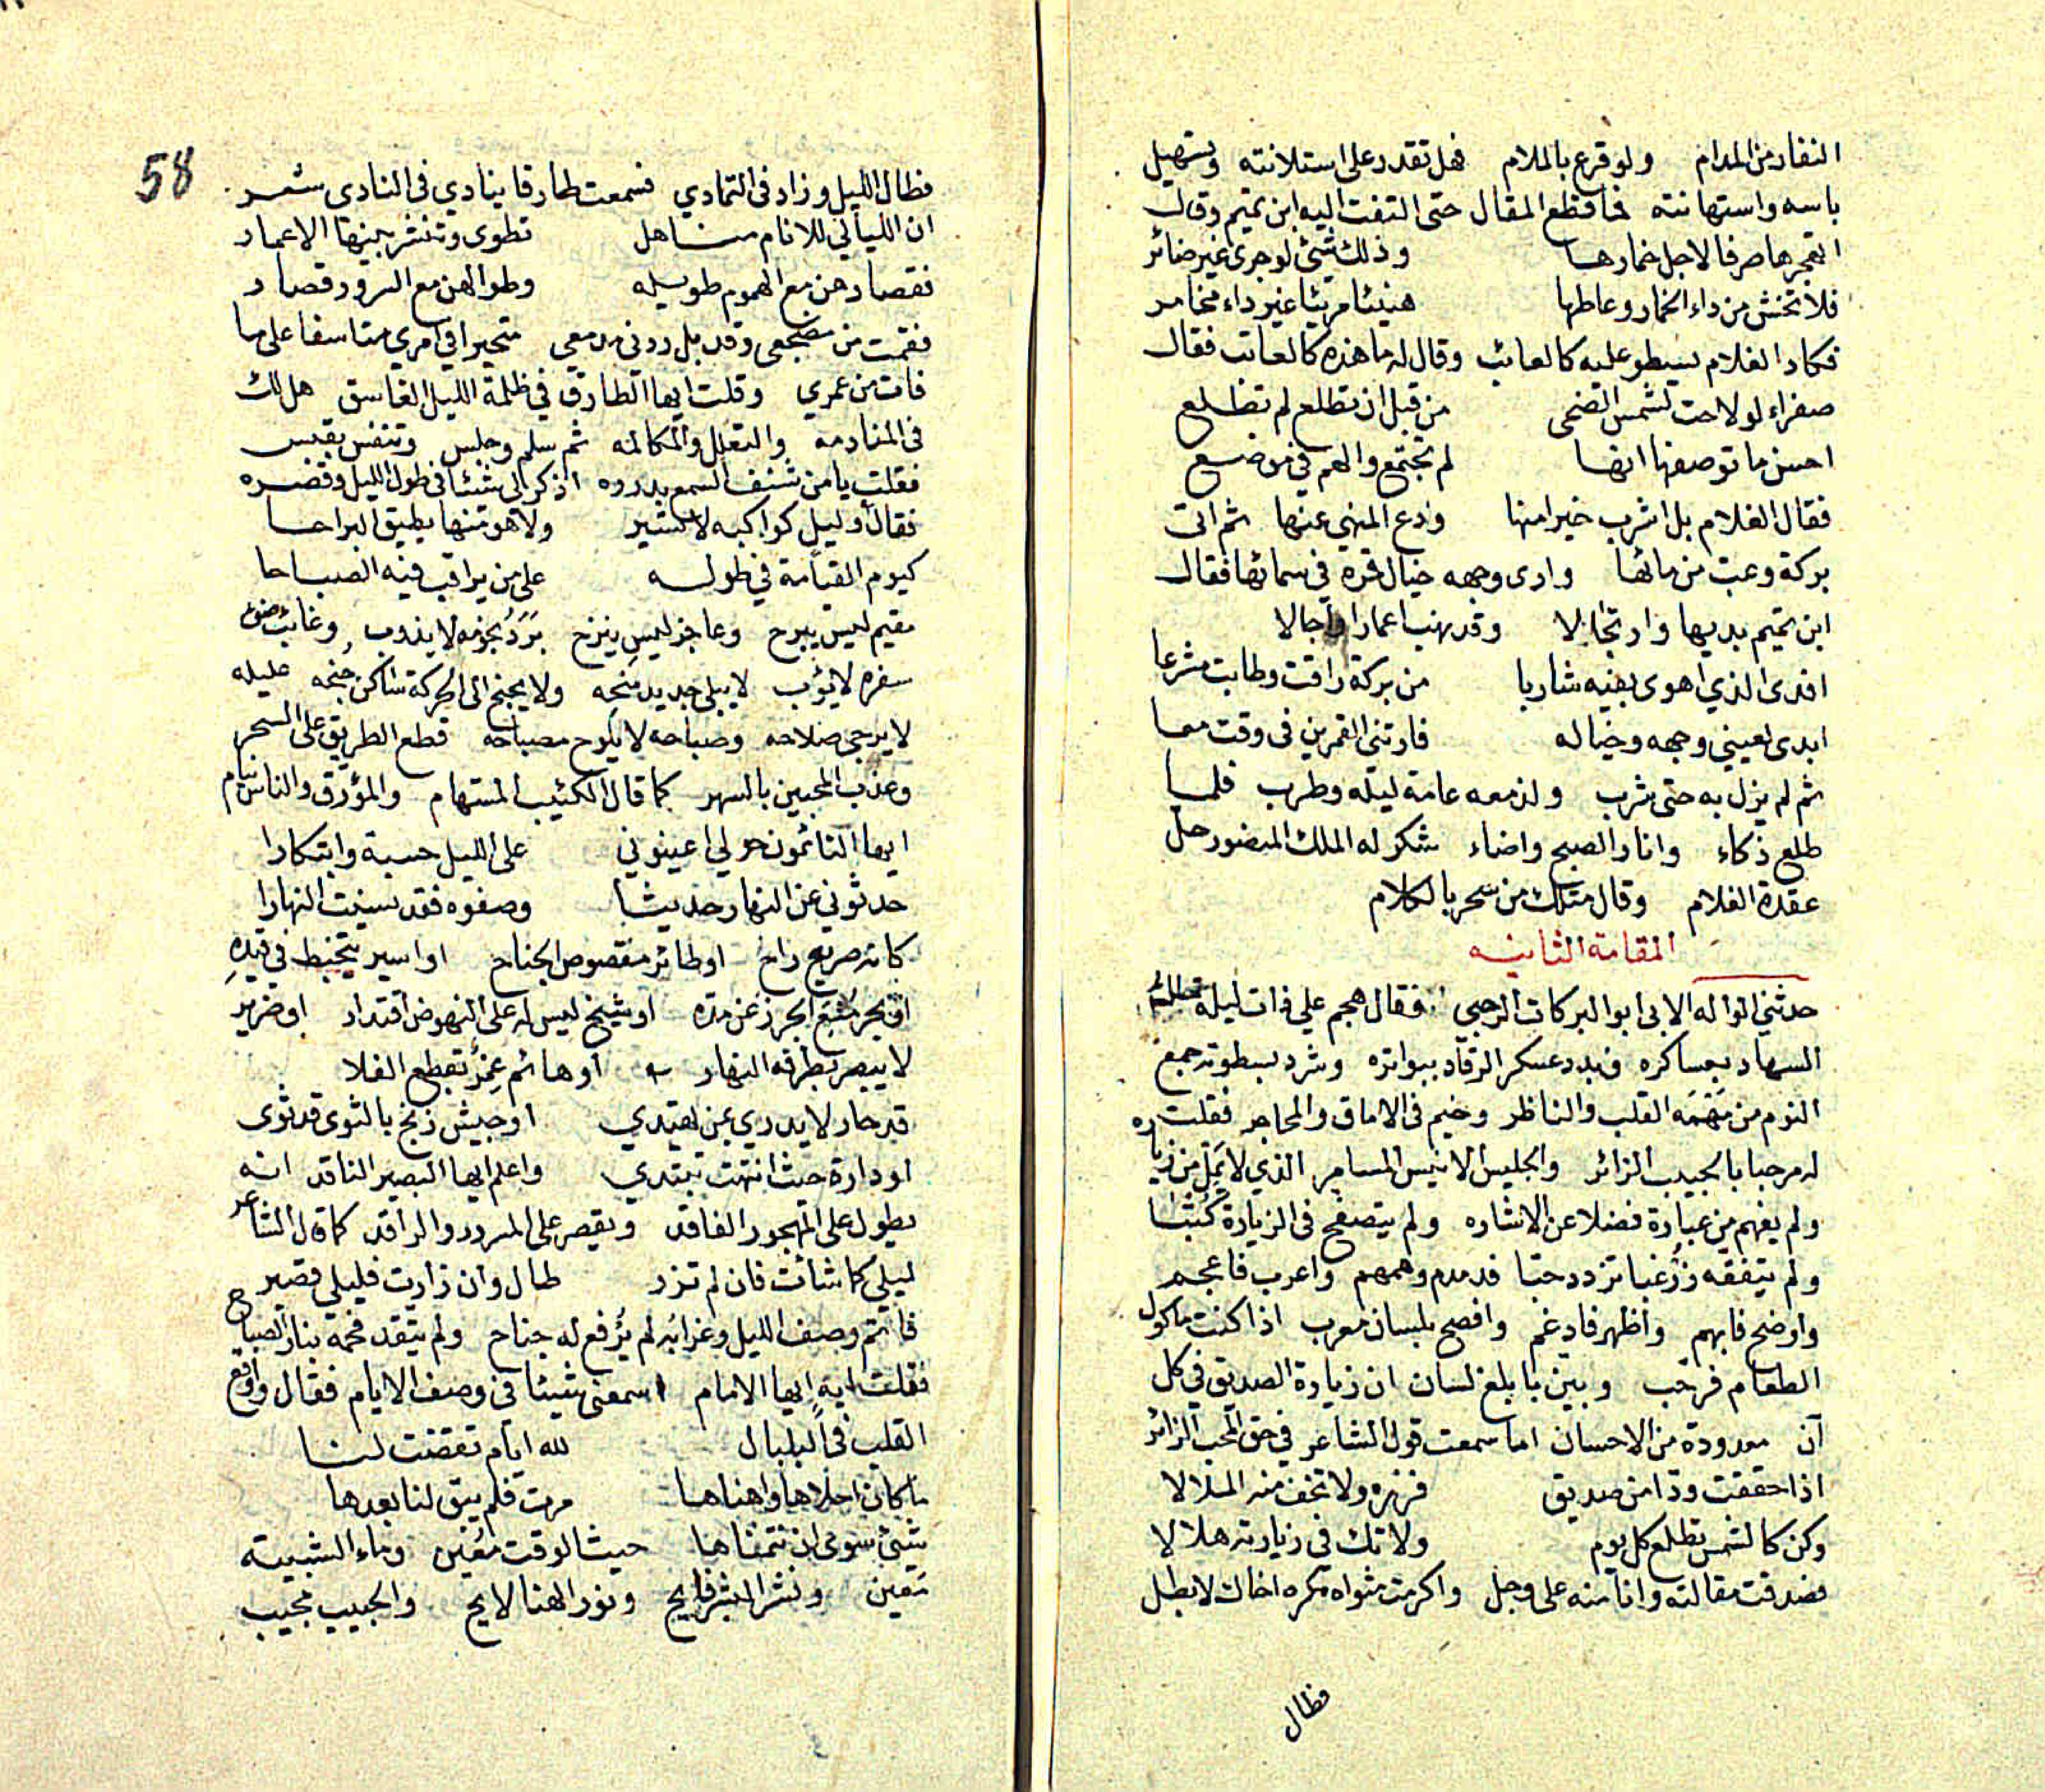 النفار من المدام ولو قرع بالملام فهل تقدر على استلانته وتسهيل
باسه واستهانته فما قطع المقال حتى التفت اليه ابن تميم وقال
اتهجرها صرفا لاجل خمارها وذلك شئ لو جرى غير ضائر
فلا تخش من داء الخمار وعاطها هنيئا مريئا غير داء مخامر
فكاد الغلام يسطو عليه كالعائب وقال له ما هذه كالعاتب فقال
صفراء لو لاحت لشمس الضحى من قبل ان تطلع لم تطلع
احسن ما توصفها انها لم تجتمع والهم في موضع
فقال الغلام بل اشرب خيرا منها ودع المنهي عنها ثم اتى
بركة وعب من مائها وارى وجهه خيال قمره في سمائها فقال
ابن تميم بديها وارتجالا وقد نهب اعمارا واجالا
افدى الذي اهوى بفيه شاربا من بركة راقت وطابت مشرعا
ابدى لعيني وجهه وخياله فارتني القمرين في وقت معا
ثم لم يزل به حتى شرب ولذ معه عامة ليله وطرب فلما
طلع ذكاء وانار الصبح واضاء شكر له الملك المنصور حل
عقدة الغلام وقال مثلك من سحر بالكلام
المقامة الثانيه
حدثني الواله الابى ابو البركات الرحبي فقال هجم علي ذات ليلة
السهاد بعساكره فبدد عسكر الرقاد ببواتره وشرد بسطوته جمع
النوم من مهمه القلب والناظر وخيم في الاماق والمحاجر فقلت
له مرحبا بالحبيب الزائر والجليس الانيس المسامر الذي لا يمل من زياره
ولم يفهم من عبارة فضلا عن الاشاره ولم يتصفح في الزيارة كتبا
ولم يتفقه زر غبا تزدد حبا فدمدم وهمهم واعرب فاعجم
واوضح فابهم واظهر فادغم وافصح بلسان معرب اذا كنت ماكول
الطعام فرحب وبين بابلغ لسان ان زيارة الصديق في كل
آن معدودة من الاحسان اما سمعت قول الشاعر في حق المحب الزائر
اذا حققت ودا من صديق فزره ولا تخف منه الملالا
وكن كالشمس تطلع كل يوم ولا تك في زيارته هلالا
فصدقت مقالته وانا منه على وجل واكرمت مثواه مكره اخاك لا بطل
فطال
58
فطال الليل وزاد في التمادي فسمعت طارقا ينادي في النادى شعر
ان الليالي للانام مناهل تطوى وتنشر بينها الاعمار
فقصارهن مع الهموم طويله وطوالهن مع السرور قصار
فقمت من مضجعي وقد بل ردني مدمعي متحيرا في امري متاسفا على ما
فات من عمري وقلت ايها الطارق في ظلمة الليل الغاسق هل لك
في المنادمه والتعلل والمكالمه ثم سلم وجلس وتنفس بقبس
فقلت يا من شنف السمع بدرره اذكر لى شئا في طول الليل وقصره
فقال وليل كواكبه لا تسير ولا هو منها يطيق البراحا
كيوم القيامة في طوله على من يراقب فيه الصباحا
مقيم ليس يبرح وعاجز ليس ينزح برد نجومه لا يذوب وغائب
سفره لا يؤب لا يبلى جديد جنحه ولا يجنح الى الحركة ساكن جنحه عليله
لا يرجى صلاحه وصباحه لا يلوح مصباحه قطع الطريق على السحر
وعذب المحبين بالسهر كما قال الكئيب المستهام والمؤرق والناس نيام
ايها النائمون حولي اعينوني على الليل حسبة وابتكارا
حدثوني عن النهار حديثا وصفوه فقد نسيت النهارا
كانه صريع راح او طائر مقصوص الجناح او اسير يتخبط في قيده
او بحر منع الجزر عن مده او شيخ ليس له على النهوض اقتدار او ضرير
لا يبصر بطرفه النهار او هائم تقطع الفلا
قد حار لا يدري بمن يهتدي او جيش زنج بالثوى قد ثوى
او دارة حيث انتهت تبتدي واعلم ايها البصير الناقد انه
يطول على المهجور الفاقد ويقصر على المسرور الراقد كما قال الشاعر
ليلي كما شائت فان لم تزر طال وان زارت فليلي قصير
فا تم وصف الليل وغرابه لم يرفع له جناح ولم يتقد فحمه بنار الصباح
فقلت ايه ايها الامام اسمعنى شيئا في وصف الايام فقال واوقع
القلب في البلبال لله ايام تقضت لنا
ما كان احلاها واهناها مرت فلم يبق لنا بعدها
شئ سوى ان نتمناها حيث الوقت معين وماء الشبيبة
معين ونشر البشر فايح ونور الهنا لايح والحبيب مجيب